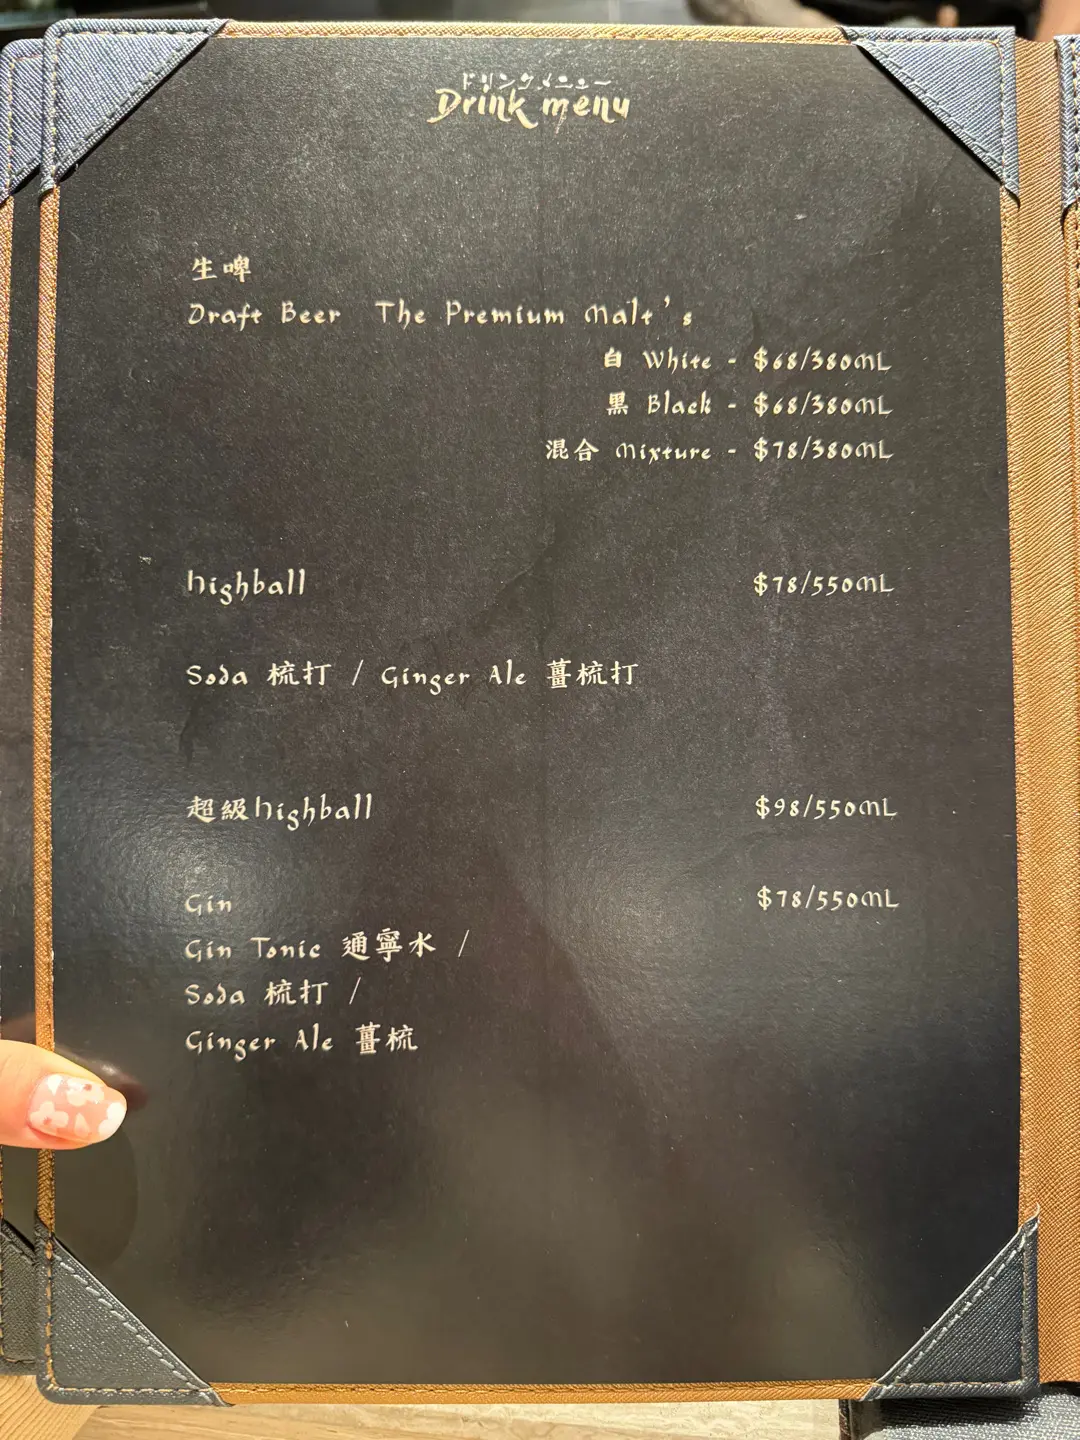 ドリンクメニュー
Drink menu
生啤
Draft Beer The Premium Malt's
白 White - $68/380mL
黑 Black - $68/380mL
混合 Mixture - $78/380mL
highball $78/550mL
Soda 梳打 / Ginger Ale 薑梳打
超級highball $98/550mL
Gin $78/550mL
Gin Tonic 通寧水 /
Soda 梳打 /
Ginger Ale 薑梳